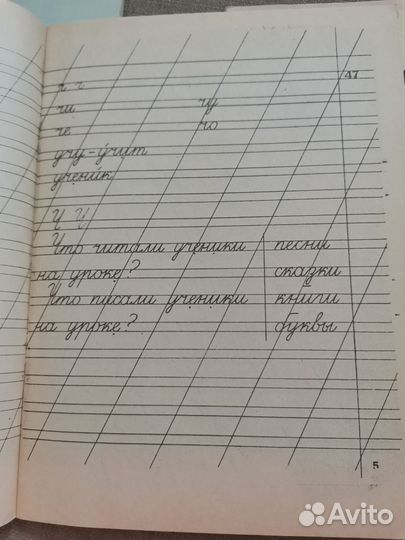 г ч
47
чи чу
че чо
учу - у́чит
учени́к
Ч Ч
Что читали ученики песни
на уроке? сказки
Что писали ученики книги
на уроке? буквы
5
Avito